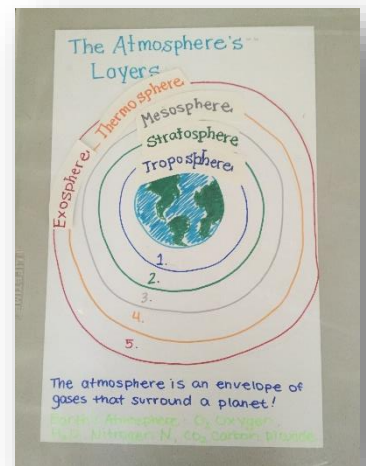 The Atmosphere's
Layers
Thermosphere
Mesosphere
Stratosphere
Troposphere
Exosphere
1.
2.
3.
4.
5.
The atmosphere is an envelope of
gases that surround a planet!
Earth's Atmosphere: O₂ Oxygen,
H₂O, Nitrogen N, CO₂ Carbon Dioxide